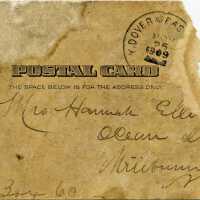 N.DOVER & EAS
25
1909
POSTAL CARD
THE SPACE BELOW IS FOR THE ADDRESS ONLY.
Mrs Hannah Elle
Ocean
Millburn
Box 60